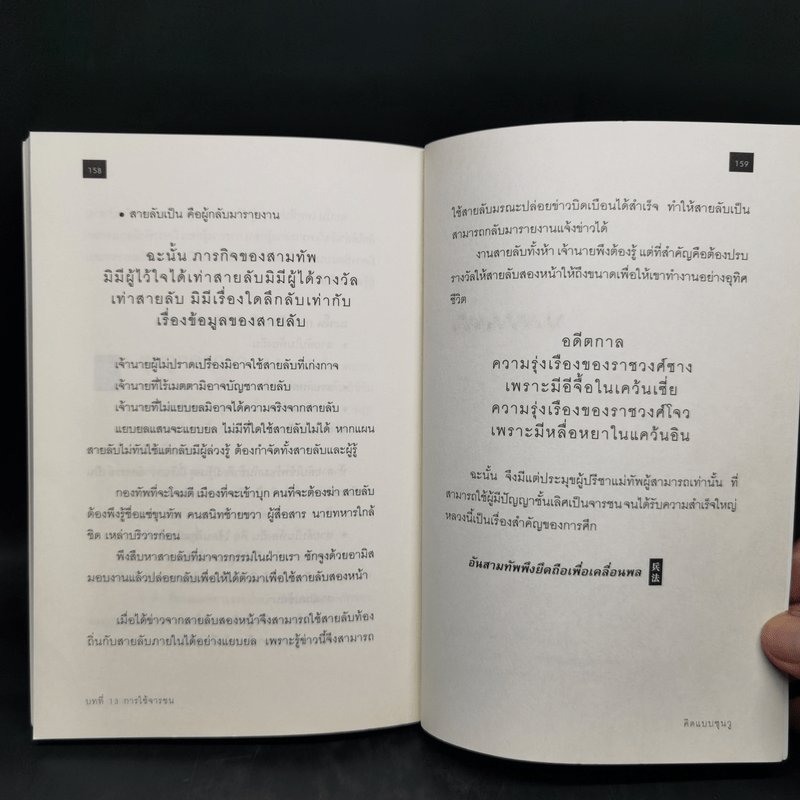 158
• สายลับเป็น คือผู้กลับมารายงาน
ฉะนั้น ภารกิจของสามทัพ
มิมีผู้ไว้ใจได้เท่าสายลับมิมีผู้ได้รางวัล
เท่าสายลับ มิมีเรื่องใดลึกลับเท่ากับ
เรื่องข้อมูลของสายลับ
เจ้านายผู้ไม่ปราดเปรื่องมิอาจใช้สายลับที่เก่งกาจ
เจ้านายที่ไร้เมตตามิอาจบัญชาสายลับ
เจ้านายที่ไม่แยบยลมิอาจได้ความจริงจากสายลับ
แยบยลแสนจะแยบยล ไม่มีที่ใดใช้สายลับไม่ได้ หากแผน
สายลับไม่ทันใช้แต่กลับมีผู้ล่วงรู้ ต้องกำจัดทั้งสายลับและผู้รู้
กองทัพที่จะโจมตี เมืองที่จะเข้าบุก คนที่จะต้องฆ่า สายลับ
ต้องพึงรู้ชื่อแซ่ขุนทัพ คนสนิทซ้ายขวา ผู้สื่อสาร นายทหารใกล้
ชิด เหล่าบริวารก่อน
พึงสืบหาสายลับที่มาจารกรรมในฝ่ายเรา ชักจูงด้วยอามิส
มอบงานแล้วปล่อยกลับเพื่อให้ได้ตัวมาเพื่อใช้สายลับสองหน้า
เมื่อได้ข่าวจากสายลับสองหน้าจึงสามารถใช้สายลับท้อง
ถิ่นกับสายลับภายในได้อย่างแยบยล เพราะรู้ข่าวนี้จึงสามารถ
บทที่ 13 การใช้จารชน
159
ใช้สายลับมรณะปล่อยข่าวบิดเบือนได้สำเร็จ ทำให้สายลับเป็น
สามารถกลับมารายงานแจ้งข่าวได้
งานสายลับทั้งห้า เจ้านายพึงต้องรู้ แต่ที่สำคัญคือต้องปรบ
รางวัลให้สายลับสองหน้าให้ถึงขนาดเพื่อให้เขาทำงานอย่างอุทิศ
ชีวิต
อดีตกาล
ความรุ่งเรืองของราชวงศ์ซาง
เพราะมีอีจื้อในเคว้นเซี่ย
ความรุ่งเรืองของราชวงศ์โจว
เพราะมีหลื่อหยาในแคว้นอิน
ฉะนั้น จึงมีแต่ประมุขผู้ปรีชาแม่ทัพผู้สามารถเท่านั้น ที่
สามารถใช้ผู้มีปัญญาชั้นเลิศเป็นจารชน จนได้รับความสำเร็จใหญ่
หลวงนี้เป็นเรื่องสำคัญของการศึก
อันสามทัพพึงยึดถือเพื่อเคลื่อนพล 兵法
คิดแบบซุนวู